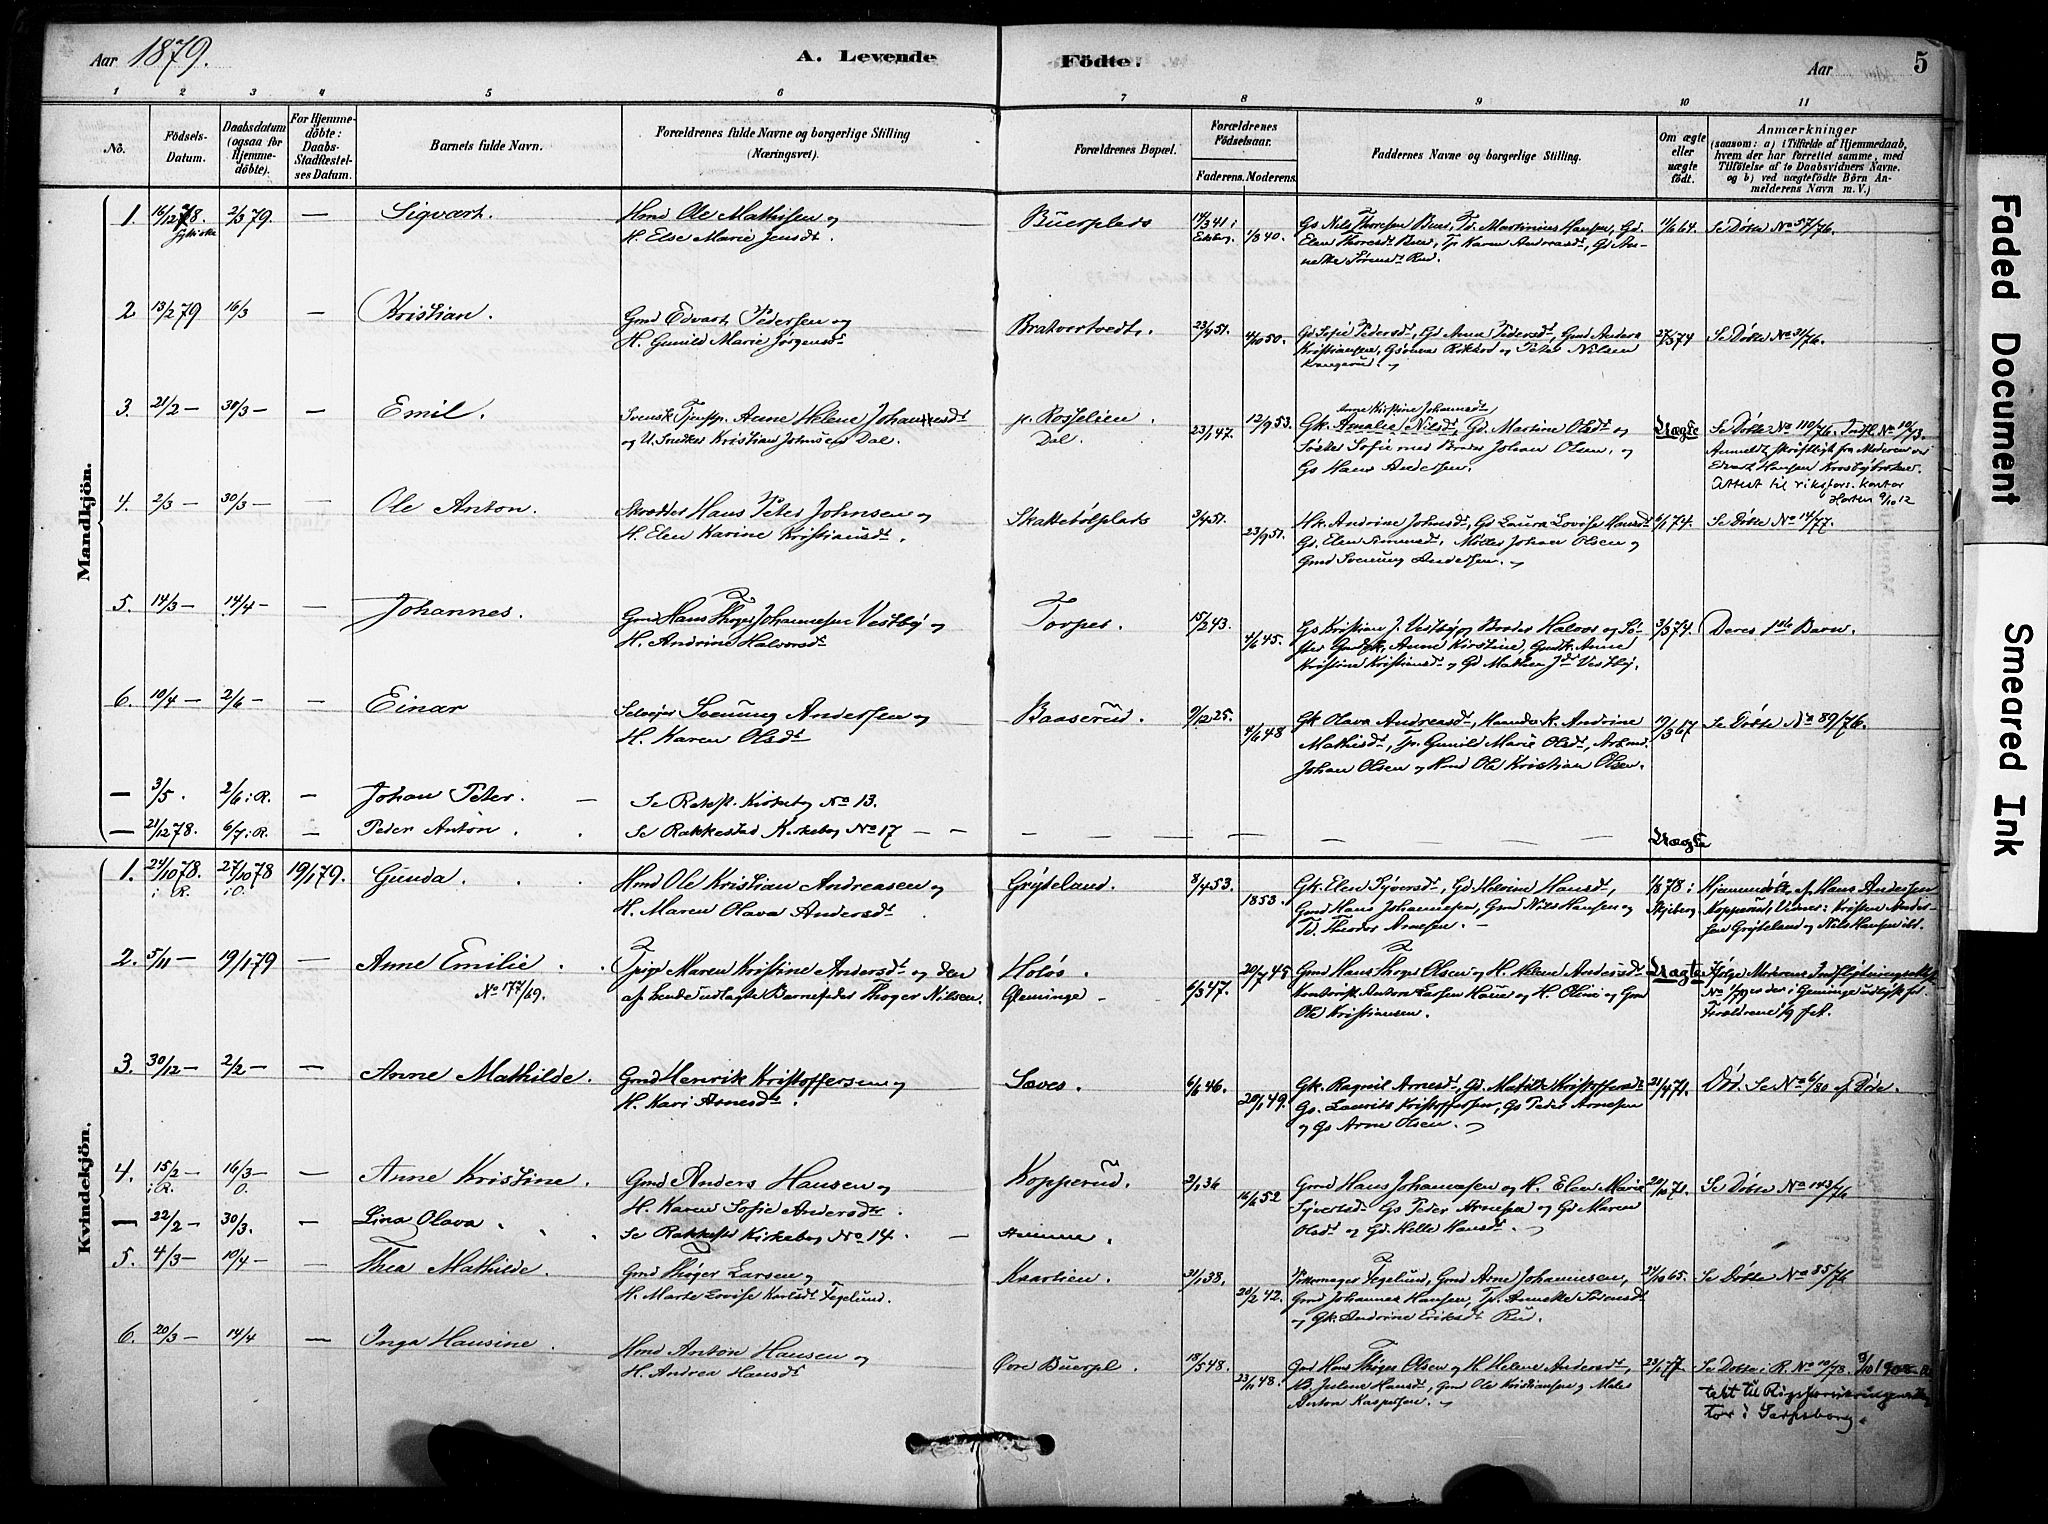 Aar 1879.
A. Levende
Födte.
Aar
5
1 2 3 4 5 6 7 8 9 10 11
No.
Födsels-Datum.
Daabsdatum (ogsaa for Hjemmedöbte).
For Hjemmedöbte: Daabs-Stadfæstelses Datum.
Barnets fulde Navn.
Forældrenes fulde Navne og borgerlige Stilling (Næringsvei).
Forældrenes Bopæl.
Forældrenes Födselsaar.
Faderens. Moderens.
Faddernes Navne og borgerlige Stilling.
Om ægte eller uægte födt.
Anmærkninger
(saasom: a) i Tilfælde af Hjemmedaab, hvem der har forrettet samme, med Tilföielse af to Daabsvidners Navne. og b) ved uægtefödte Börn Anmelderens Navn m. V.)
Mandkjön.
1. 16/12 78. 2/3 79. — Sigvart. Hmd Ole Mathisen og Buerplads 14/3 41 i
H. Else Marie Jensdt. 1/8 40. Elen Thoresdt Bue, Tp Karen Andreasdt, Gd An-
nette Sørensdt Rud. 11/6 64. Se Døbte No 57/76.
2 13/2 79 16/3 — Kristian. Gmd Edvart Pedersen og Bratvortvedt. 23/4 51.
H. Gunild Marie Jørgensdt 4/10 50. Gd Sofie Pedersdt, Gd Anna Pedersdt, Gmd Anders
Peter Nilsen 27/3 74 Se Døbte No 31/76.
3. 21/2 — 30/3 — — Emil. Svensk Tjenstp. Anne Helene Johannesdt p. Rosselien 12/9 53.
og U. Snedker Kristian Johnsen Dal. Dal. 23/1 47.
Anne Kirstine Johannesdt,
Gk. Amalie Nilsdt, Gd. Martine Olsdt og
Søster Sofie med Broder Johan Olsen, og
Gs Hans Andersen. Uægte Se Døbte No 110/76. Indfl. No 10/73.
Anmeldt skriftligt fra Moderen ved
Edvart Hansen
Attest til riksfors. kontor
Horten 9/10 12
4. 2/3 — 30/3 — — Ole Anton. Skrædder Hans Peter Johnsen og Skattebølplads 3/4 51.
H. Elen Karine Kristiansdt. 23/9 51.
Hk. Andrine Johnsdt, Gd Laura Lovise Hansdt
Gd. Elen Simensdt, Møller Johan Olsen og
Gmd Svenung Andersen. 6/1 74. Se Døbte No 14/77.
5. 14/3 — 14/4 — — Johannes. Gmd Hans Thoger Johannesen Vestby og Torper. 15/2 43.
H. Andrine Halvorsdt 4/6 45.
Gs Kristian J. Vestby og Broder Halvor og Sø-
ster Gmdk. Anne Kirstine, Gmdk. Anne
Kristine Kristiansdt og Gd Mathea Jdt Vestby. 3/3 74. Deres 1ste Barn.
6. 10/4 — 2/6 — — Einar Selveier Svenung Andersen og Baaserud. 9/12 25.
H. Karen Olsdt 4/6 48
Gk Olava Andreasdt, Andrine
Mathisdt, Tp. Gunild Marie Olsdt, Arbmd.
Johan Olsen og Hmd Ole Kristian Olsen. 19/3 67 Se Døbte No 89/76.
— 3/5. 2/6 i R. — Johan Peter. — Se Rakst. Kirkebog No 13.
— 21/12 78. 6/7 i R. — Peder Anton. Se Rakkestad Kirkebog No 17 — — Uægte
Kvindekjön.
1. 24/10 78. i R. 27/10 78 i O. 19/1 79. Gunda. Hmd Ole Kristian Andreasen og Grøteland. 8/4 53.
H. Maren Olava Andersdt 1853.
Gk. Elen Syversdt, Gd Helvine Hansdt,
Gmd Hans Johannesen, Gmd Nils Hansen og
Td. Theodor Arnesen. — 1/8 78 i Skjeberg. Hjemmedøbt af Hans Andersen
Kopperud, Vidner: Kristen Ander-
sen Grøteland og Nils Hansen ibd.
2. 5/11 — 19/1 79 — Anne Emilie. Pige Maren Kristine Andersdt og den Holøs. 20/7 45
No 177/69. af hende udlagte Barnefader Thoger Nilsen. Gleminge — 6/3 47.
Gmd Hans Thoger Olsen og H. Helene Andersdt
Ole Kristiansen. Uægte Ifølge Moderens Indflytningsattest
No 1/79 er der i Gleminge udlyst for
Forældrene
3. 30/12 — 2/2 — — Anne Mathilde. Gmd Henrik Kristoffersen og Sæves. 6/6 46.
H. Kari Arnesdt. 20/1 49.
Gk. Ragnil Arnesdt, Gd. Matilde Kristoffersdt
Gs. Laurits Kristoffersen, Gs Peder Arnesen
og Gs Arne Olsen. 21/4 71. Død. Se No 6/80 af Døde.
4. 15/2 — i R. 16/3 — O. — Anne Kristine. Gmd Anders Hansen og Kopperud. 2/1 36
H. Karen Sofie Andersdt. 16/6 52
Gmd Hans Johannesen og H. Elen Marie
Syversdt Gs Peder Arnesen og Gd Maren
Olsdt og Gd. Helle Hansdt. 20/10 71. Se Døbte No 123/76
— 22/2 — 30/3. — Lina Olava. Se Rakkest. Kirkebog No 14. — Stemme.
5. 4/3 — 10/4 — — Thea Mathilde. Gmd Thøger Larsen og Knartien. 31/1 38.
H. Marte Lovise Karlsdt Fegelund. 20/2 42.
Pottemager Fegelund, Gmd Arne Johannesen,
Gmd Johannes Hansen, Tp. Annette Sørensdt
og Gk. Andrine Eriksdt Rud. 24/10 65. Se Døbte No 85/76
6. 20/3 — 14/4 — Inga Hansine. Hmd Anton Hansen og Øvre Buerpl. 18/5 48.
H. Andrea Hansdt 23/11 48.
Gmd Hans Thoger Olsen og H. Helene Andersdt,
Ud. Julene Hansdt, Gmd Ole Kristiansen og Maler
Anton Kaspersen. 23/1 77. Se Døbte i R. No 10/78.
test til Rigsforsikringens kon
tor i Sarpsborg.
Faded Document
Smeared Ink